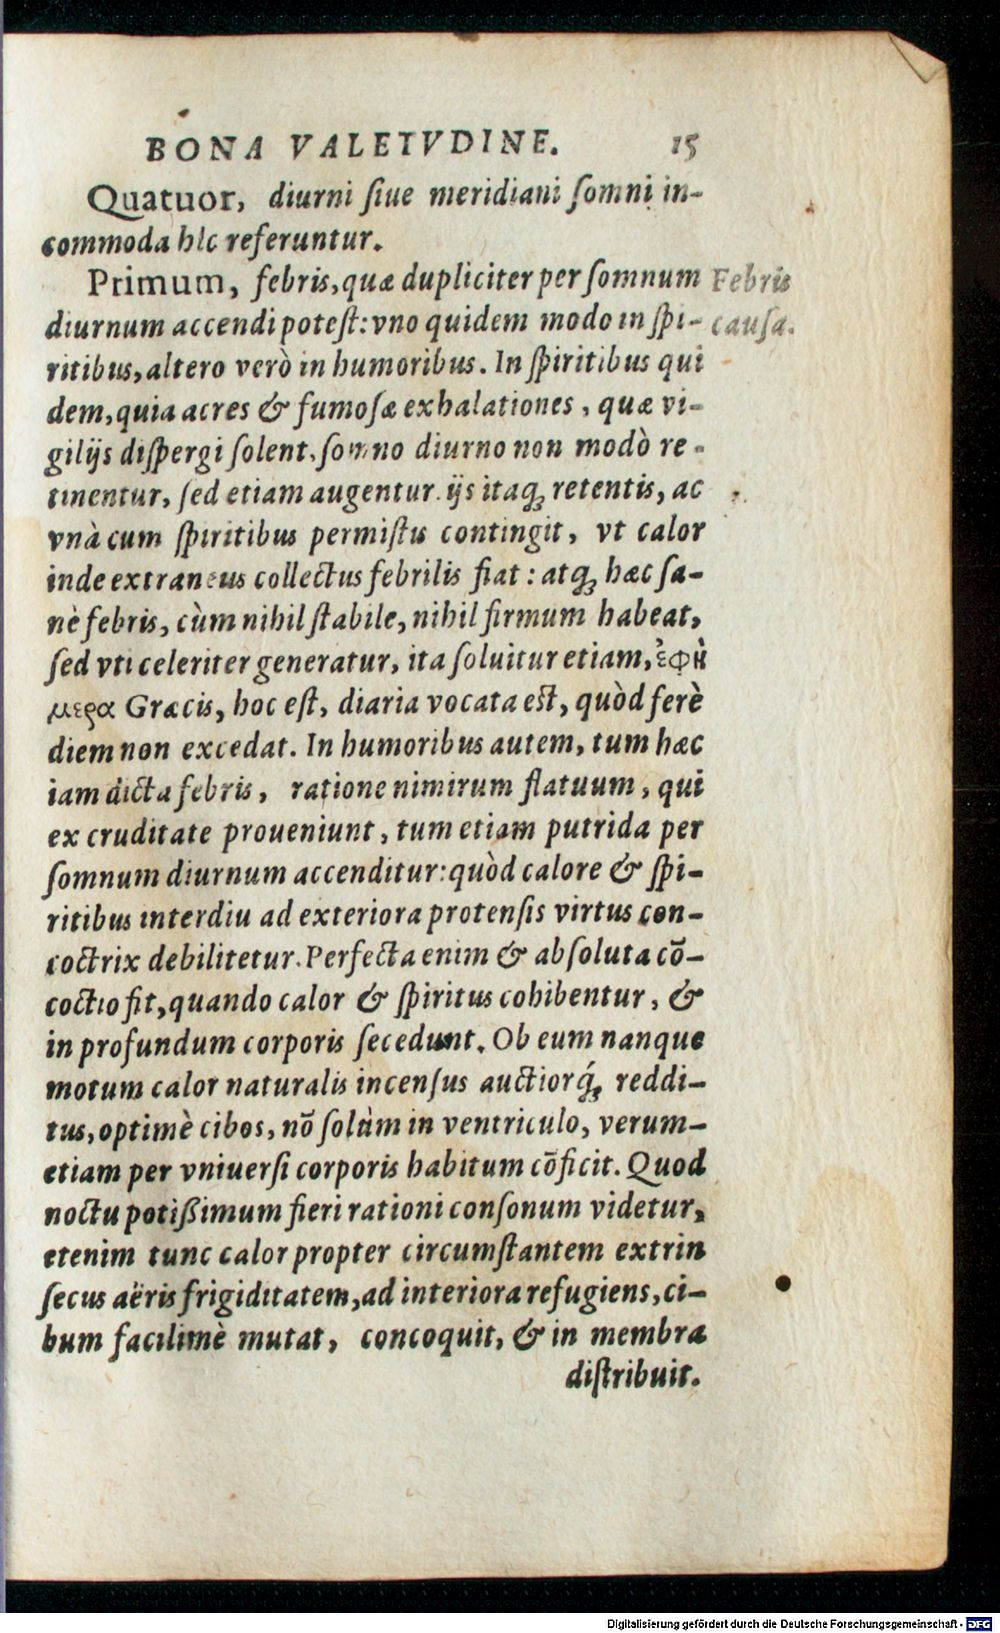 BONA VALETVDINE. 15
Quatuor, diurni ſiue meridiani ſomni in-
commoda hîc referuntur.
Primum, febris, quæ dupliciter per ſomnum Febris
diurnum accendi poteſt: vno quidem modo in ſpi- cauſa.
ritibus, altero verò in humoribus. In ſpiritibus qui
dem, quia acres & fumoſæ exhalationes, quæ vi-
gilijs diſpergi ſolent, ſomno diurno non modò re-
tinentur, ſed etiam augentur. ijs itaq; retentis, ac
vnà cum ſpiritibus permiſtis contingit, vt calor
inde extraneus collectus febrilis fiat: atq; hæc ſa-
nè febris, cùm nihil ſtabile, nihil firmum habeat,
ſed vti celeriter generatur, ita ſoluitur etiam, ἐφὴ
μερα Græcis, hoc eſt, diaria vocata eſt, quòd ferè
diem non excedat. In humoribus autem, tum hæc
iam dicta febris, ratione nimirum flatuum, qui
ex cruditate proueniunt, tum etiam putrida per
ſomnum diurnum accenditur: quòd calore & ſpi-
ritibus interdiu ad exteriora protenſis virtus con-
coctrix debilitetur. Perfecta enim & abſoluta cō-
coctio fit, quando calor & ſpiritus cohibentur, &
in profundum corporis ſecedunt. Ob eum nanque
motum calor naturalis incenſus auctiorq́; reddi-
tus, optimè cibos, nō ſolùm in ventriculo, verum-
etiam per vniuerſi corporis habitum cōficit. Quod
noctu potißimum fieri rationi conſonum videtur,
etenim tunc calor propter circumſtantem extrin
ſecus aëris frigiditatem, ad interiora refugiens, ci-
bum facilimè mutat, concoquit, & in membra
diſtribuit.
Digitalisierung gefördert durch die Deutsche Forschungsgemeinschaft - DFG